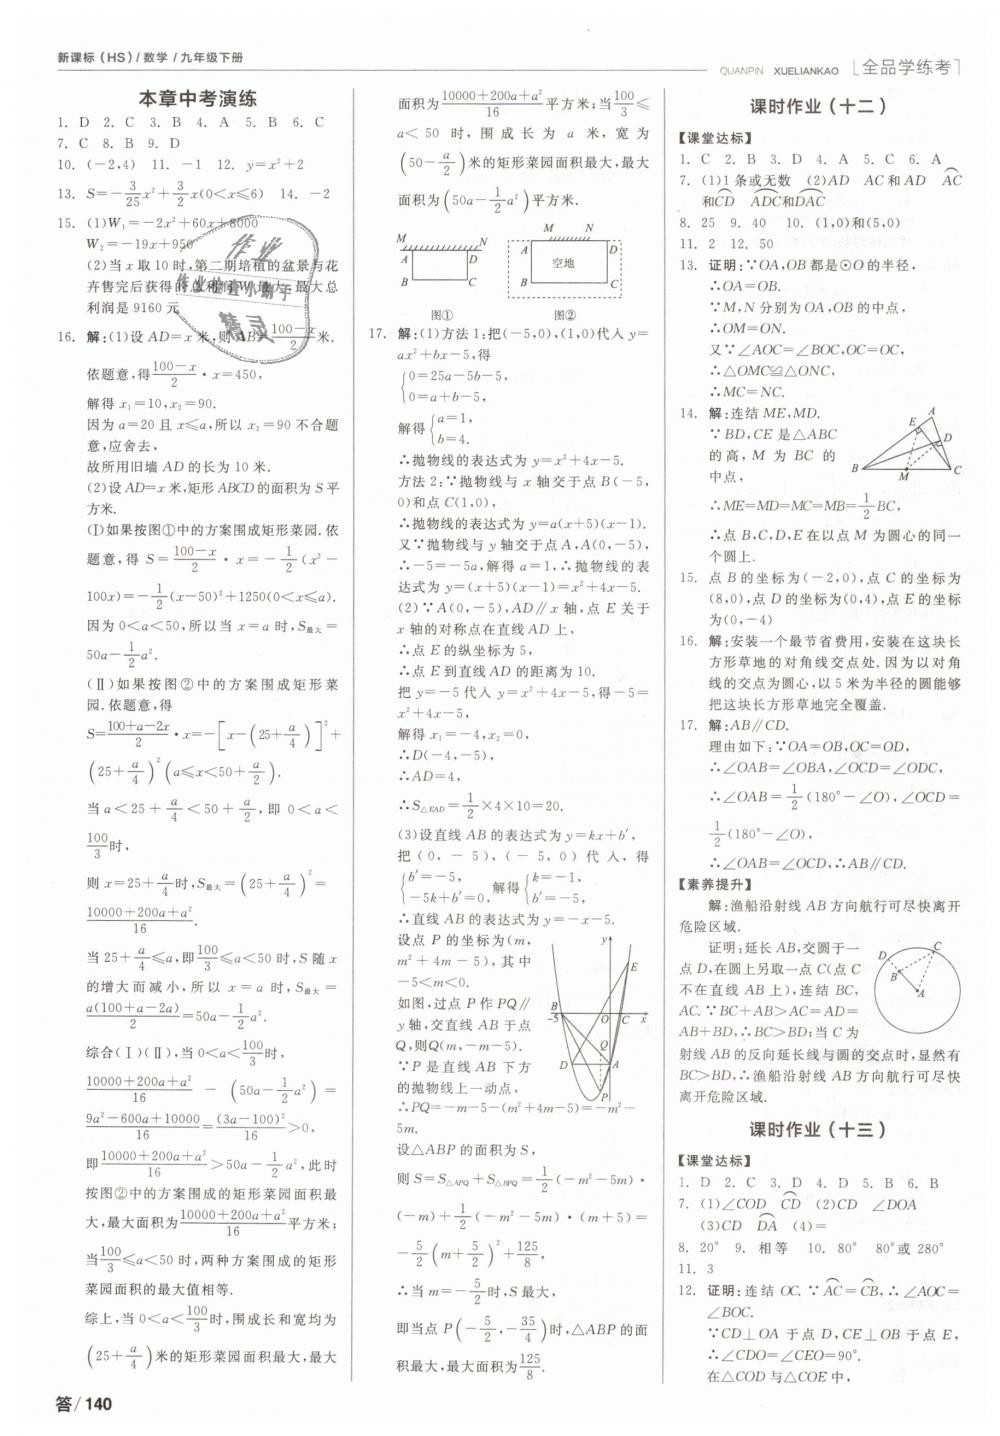 新课标(HS)/数学/九年级下册
QUANPIN XUELIANKAO [全品学练考]
本章中考演练
1. D 2. C 3. B 4. A 5. B 6. C
7. C 8. B 9. D
10. (-2,4) 11. -1 12. y=x²+2
13. S=-3/25x²+3/2x(0<x≤6) 14. -2
15. (1)W₁=-2x²+60x+8000
W₂=-19x+950
(2)当x取10时,第二期培植的盆景与花
卉售完后获得的总利润W最大,最大总
利润是9160元
16. 解:(1)设AD=x米,则AB=(100-x)/2米.
依题意,得(100-x)/2·x=450,
解得x₁=10,x₂=90.
因为a=20且x≤a,所以x₂=90不合题
意,应舍去,
故所用旧墙AD的长为10米.
(2)设AD=x米,矩形ABCD的面积为S平
方米.
(Ⅰ)如果按图①中的方案围成矩形菜园.依
题意,得S=(100-x)/2·x=-1/2(x²-
100x)=-1/2(x-50)²+1250(0<x≤a).
因为0<a<50,所以当x=a时,S最大=
50a-1/2a².
(Ⅱ)如果按图②中的方案围成矩形菜
园.依题意,得
S=(100+a-2x)/2·x=-[x-(25+a/4)]²+
(25+a/4)²(a≤x<50+a/2).
当a<25+a/4<50+a/2,即0<a<
100/3时,
则x=25+a/4时,S最大=(25+a/4)²=
(10000+200a+a²)/16.
当25+a/4≤a,即100/3≤a<50时,S随x
的增大而减小,所以x=a时,S最大=
a(100+a-2a)/2=50a-1/2a².
综合(Ⅰ)(Ⅱ),当0<a<100/3时,
(10000+200a+a²)/16-(50a-1/2a²)=
(9a²-600a+10000)/16=(3a-100)²/16>0,
即(10000+200a+a²)/16>50a-1/2a²,此时
按图②中的方案围成的矩形菜园面积最
大,最大面积为(10000+200a+a²)/16平方米;
当100/3≤a<50时,两种方案围成的矩形
菜园面积的最大值相等.
综上,当0<a<100/3时,围成长和宽均为
(25+a/4)米的矩形菜园面积最大,最大
面积为(10000+200a+a²)/16平方米;当100/3≤
a<50时,围成长为a米,宽为
(50-a/2)米的矩形菜园面积最大,最大
面积为(50a-1/2a²)平方米.
M N A D B C
M N A D 空地 B C
图① 图②
17. 解:(1)方法1:把(-5,0),(1,0)代入y=
ax²+bx-5,得
{0=25a-5b-5,
0=a+b-5,
解得{a=1,
b=4.
∴抛物线的表达式为y=x²+4x-5.
方法2:∵抛物线与x轴交于点B(-5,
0)和点C(1,0),
∴抛物线的表达式为y=a(x+5)(x-1).
又∵抛物线与y轴交于点A,A(0,-5),
∴-5=-5a,解得a=1,∴抛物线的表
达式为y=(x+5)(x-1)=x²+4x-5.
(2)∵A(0,-5),AD∥x轴,点E关于
x轴的对称点在直线AD上,
∴点E的纵坐标为5,
∴点E到直线AD的距离为10.
把y=-5代入y=x²+4x-5,得-5=
x²+4x-5,
解得x₁=-4,x₂=0,
∴D(-4,-5),
∴AD=4,
∴S△EAD=1/2×4×10=20.
(3)设直线AB的表达式为y=kx+b′,
把(0,-5),(-5,0)代入,得
{b′=-5,
-5k+b′=0,解得{k=-1,
b′=-5,
∴直线AB的表达式为y=-x-5.
设点P的坐标为(m,
m²+4m-5),其中
-5<m<0.
如图,过点P作PQ∥
y轴,交直线AB于点
Q,则Q(m,-m-5).
∵P是直线AB下方
的抛物线上一动点,
y E B -5 O C x Q D A P
∴PQ=-m-5-(m²+4m-5)=-m²-
5m.
设△ABP的面积为S,
则S=S△APQ+S△BPQ=1/2(-m²-5m)·
(-m)+1/2(-m²-5m)·(m+5)=
-5/2(m+5/2)²+125/8,
∴当m=-5/2时,S最大,
即当点P(-5/2,-35/4)时,△ABP的面
积最大,最大面积为125/8.
课时作业(十二)
【课堂达标】
1. C 2. B 3. D 4. A 5. C 6. A
7. (1)1条或无数 (2)AD AC和AD AC⌒
和CD⌒ ADC⌒和DAC⌒
8. 25 9. 40 10. (1,0)和(5,0)
11. 2 12. 50
13. 证明:∵OA,OB都是⊙O的半径,
∴OA=OB.
∵M,N分别为OA,OB的中点,
∴OM=ON.
又∵∠AOC=∠BOC,OC=OC,
∴△OMC≌△ONC,
∴MC=NC.
14. 解:连结ME,MD.
∵BD,CE是△ABC
的高,M为BC的
中点,
A E D B M C
∴ME=MD=MC=MB=1/2BC,
∴点B,C,D,E在以点M为圆心的同一
个圆上.
15. 点B的坐标为(-2,0),点C的坐标为
(8,0),点D的坐标为(0,4),点E的坐标
为(0,-4)
16. 解:安装一个最节省费用,安装在这块长
方形草地的对角线交点处.因为以对角
线的交点为圆心,以5米为半径的圆能够
把这块长方形草地完全覆盖.
17. 解:AB∥CD.
理由如下:∵OA=OB,OC=OD,
∴∠OAB=∠OBA,∠OCD=∠ODC,
∴∠OAB=1/2(180°-∠O),∠OCD=
1/2(180°-∠O),
∴∠OAB=∠OCD,∴AB∥CD.
【素养提升】
解:渔船沿射线AB方向航行可尽快离开
危险区域.
证明:延长AB,交圆于一
点D,在圆上另取一点C(点C
不在直线AB上),连结BC,
AC.∵BC+AB>AC=AD=
AB+BD,∴BC>BD;当C为
D C B A
射线AB的反向延长线与圆的交点时,显然有
BC>BD,∴渔船沿射线AB方向航行可尽快
离开危险区域.
课时作业(十三)
【课堂达标】
1. D 2. C 3. D 4. D 5. B 6. B
7. (1)∠COD CD⌒ (2)CD ∠DOA
(3)CD DA⌒ (4)=
8. 20° 9. 相等 10. 80° 80°或280°
11. 3
12. 证明:连结OC.∵AC⌒=CB⌒,∴∠AOC=
∠BOC.
∵CD⊥OA于点D,CE⊥OB于点E,
∴∠CDO=∠CEO=90°.
在△COD与△COE中,
答/140